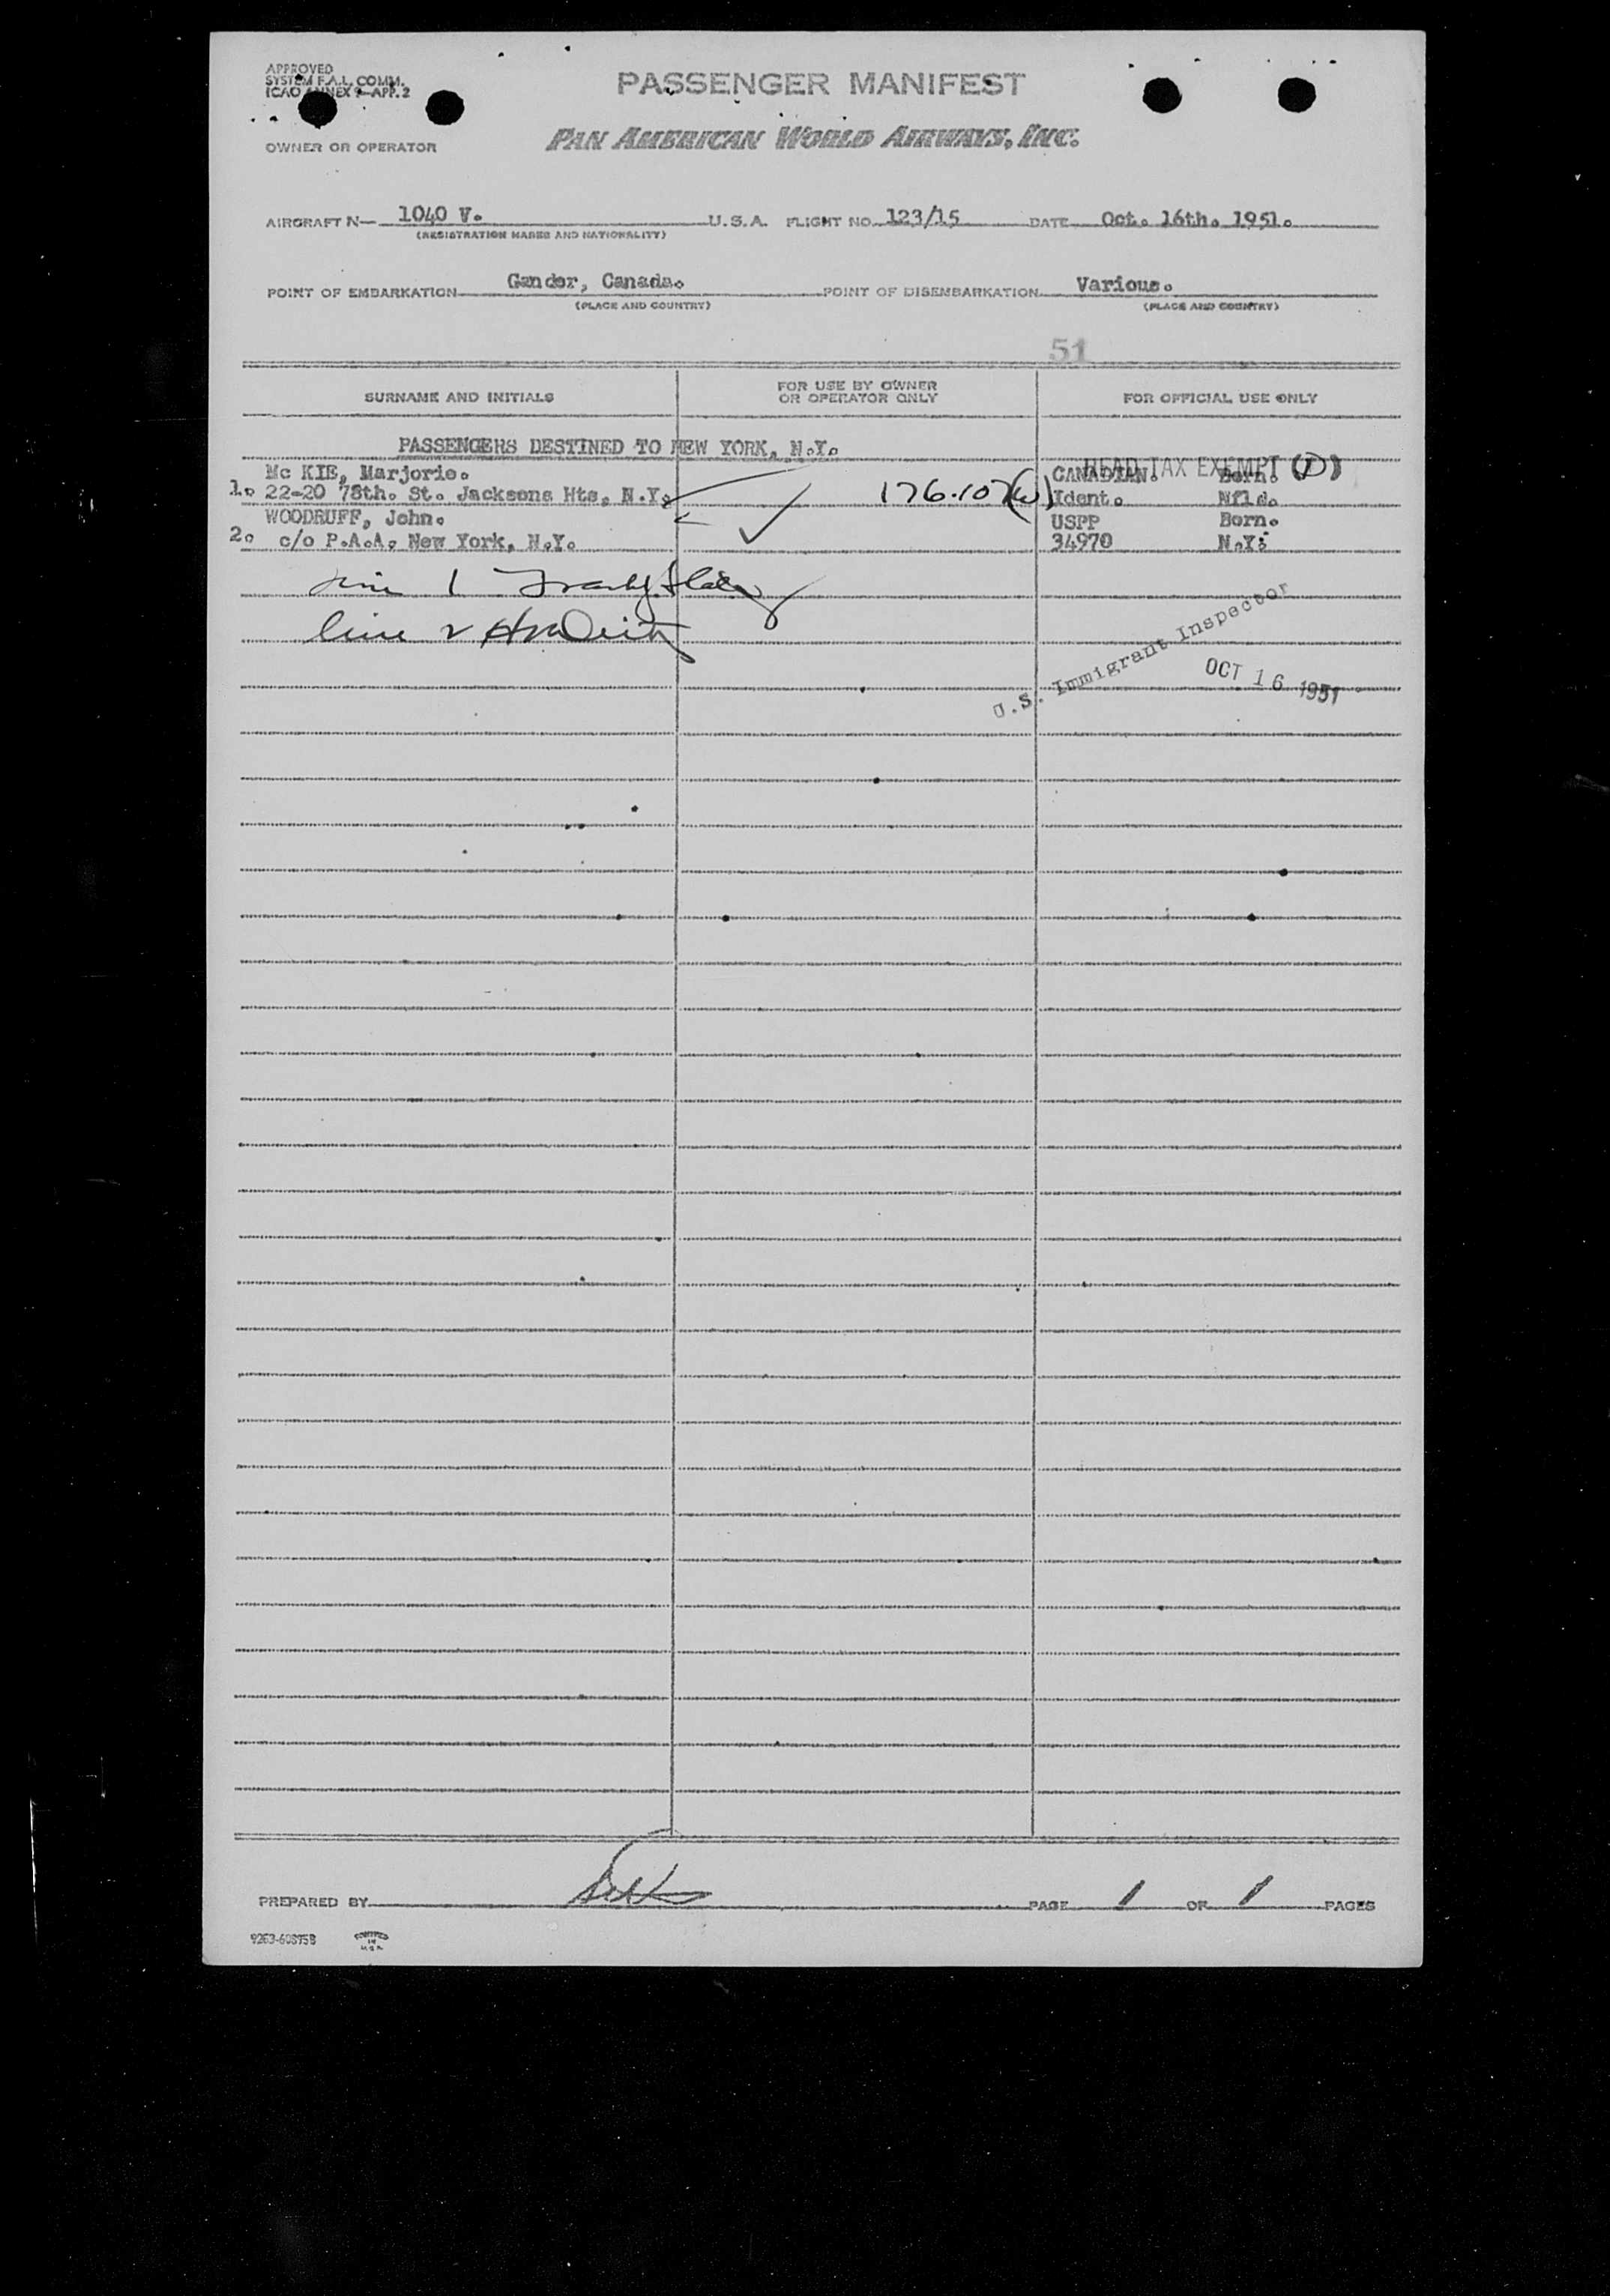 APPROVED
SYSTEM F.A.L. COMM.
ICAO ANNEX 9—APP. 2
PASSENGER MANIFEST
OWNER OR OPERATOR
PAN AMERICAN WORLD AIRWAYS, INC.
AIRCRAFT N— 1040 V. U.S.A. FLIGHT NO. 123/15 DATE Oct. 16th. 1951.
(REGISTRATION MARKS AND NATIONALITY)
POINT OF EMBARKATION Gander, Canada. POINT OF DISEMBARKATION Various.
(PLACE AND COUNTRY) (PLACE AND COUNTRY)
51
SURNAME AND INITIALS FOR USE BY OWNER OR OPERATOR ONLY FOR OFFICIAL USE ONLY
PASSENGERS DESTINED TO NEW YORK, N.Y.
HEAD TAX EXEMPT (D)
Mc KIE, Marjorie. CANADIAN. Born.
1. 22-20 78th. St. Jacksons Hts, N.Y. 176.107(W) Ident. Nfld.
WOODRUFF, John. USPP Born.
2. c/o P.A.A. New York, N.Y. 34970 N.Y.
line 1
line 2
U.S. Immigrant Inspector
OCT 16 1951
PREPARED BY PAGE 1 OF 1 PAGES
9263-60875B PRINTED
IN
U.S.A.